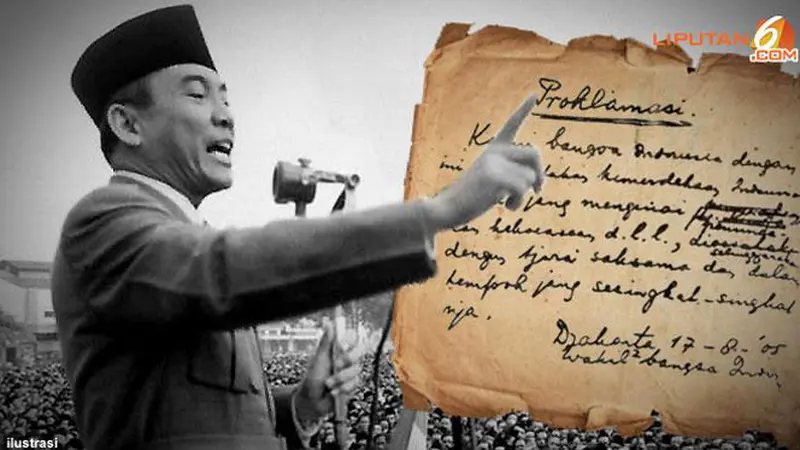 LIPUTAN 6
.COM
Proklamasi.
bangsa Indonesia dengan
ini kemerdekaan
jang mengenai
kekoeasaan d.l.l.,
dengan tjara saksama dan dalam
tempoh jang sesingkat-singkat
nja.
Djakarta, 17-8-'05
Wakil2 bangsa
ilustrasi